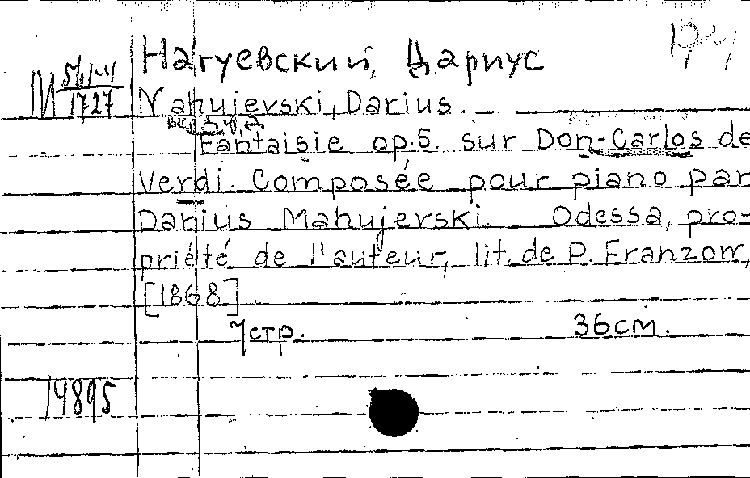 Нагуевский, Дариус
Nahujevski, Darius.
Fantaisie op.5. sur Don-Carlos de
Verdi. Composée pour piano par
Darius Mahujevski. Odessa, pro=
priété de l'auteur, lit. de P. Franzow,
[1868]
7 стр. 36 см.
М
1727
14895